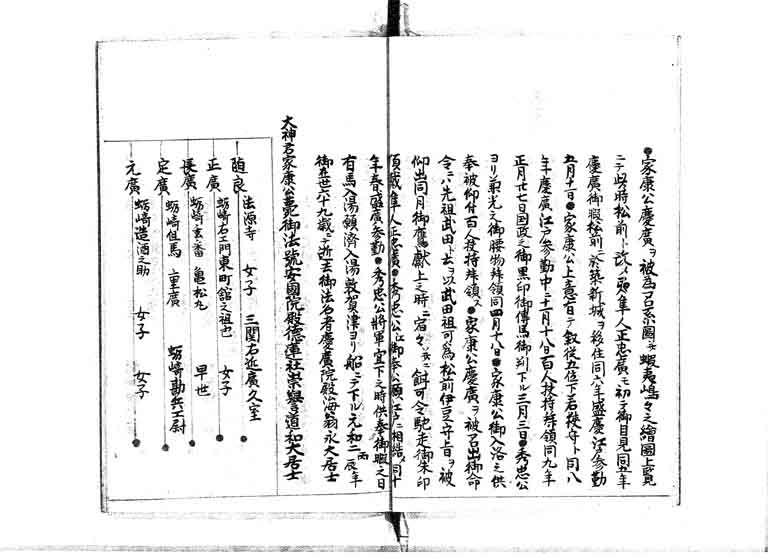 ●家康公慶廣ヲ被為召系圖并蝦夷嶋々之繪圖上覧
ニテ此時松前ト改メ弱隼人正忠廣モ初テ御目見同五年
慶廣御暇松前江築新城ヲ移住同六年盛慶江戸参勤
五月十一日●家康公上意旨テ敘従五位下若狭守ト同八
年慶廣江戸参勤中ニ十一月十八日百人扶持拝領同九年
正月廿七日国政之御黒印御傳馬御判下ル三月三日●秀忠公
ヨリ菊光之御腰物拝領同四月十八日●家康公御入洛之供
奉被仰付百人扶持拝領ス●家康公慶廣ヲ被召出御命
令ハ先祖武田ト云ヲ以武田祖可為松前伊豆守旨ヲ被
仰出同月御鷹献上之時ニ宿々ニ餌可令馳走御朱印
頂戴隼人正忠廣●秀忠公江御奉公願江戸ニ相詰メ同十
年春盛廣参勤●秀忠公将軍宣下之時供奉御暇之日
有馬入湯願済入湯敦賀津ヨリ船ニテ下ル元和二丙辰年
御在世六十九歳ニテ逝去御法名者慶廣院殿海翁永大居士
大神君家康公薨御法號安國院殿德蓮社崇譽道和大居士
随良 法源寺 女子 三関右近廣久室
正廣 蛎崎右エ門東町舘之祖也 女子
長廣 蛎崎玄蕃 亀松丸 早世
定廣 蛎崎但馬 重廣 蛎崎勘兵エ尉
元廣 蛎崎造酒之助 女子 女子